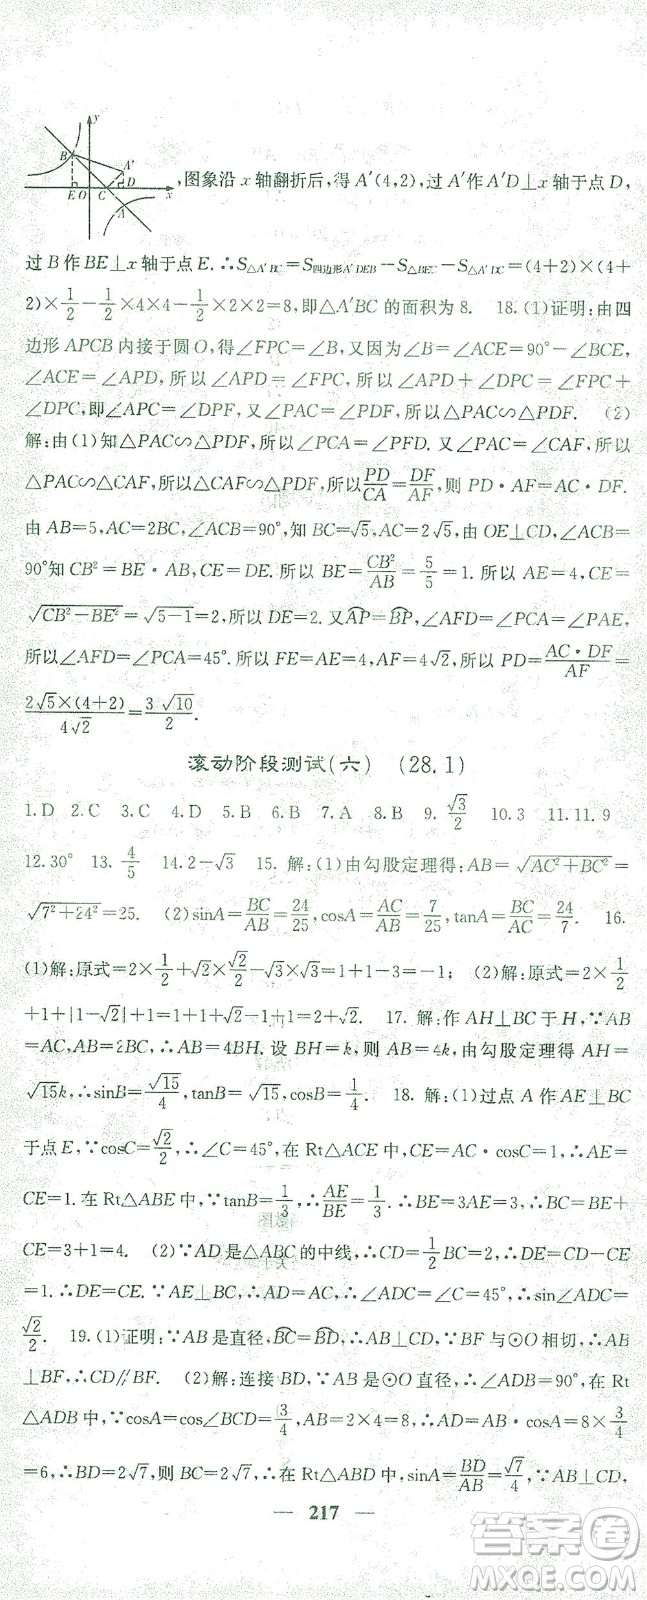 y
B
A'
E O C D x
A
,图象沿 x 轴翻折后,得 A'(4,2),过 A'作 A'D⊥x 轴于点 D,
过 B 作 BE⊥x 轴于点 E. ∴S△A'BC=S四边形A'DEB-S△BEC-S△A'DC=(4+2)×(4+
2)×1/2-1/2×4×4-1/2×2×2=8,即△A'BC 的面积为 8. 18.(1)证明:由四
边形 APCB 内接于圆 O,得∠FPC=∠B,又因为∠B=∠ACE=90°-∠BCE,
∠ACE=∠APD,所以∠APD=∠FPC,所以∠APD+∠DPC=∠FPC+
∠DPC,即∠APC=∠DPF,又∠PAC=∠PDC,所以△PAC∽△PDF. (2)
解:由(1)知△PAC∽△PDF,所以∠PCA=∠PFD.又∠PAC=∠CAF,所以
△PAC∽△CAF,所以△CAF∽△PDF,所以PD/CA=DF/AF,则 PD·AF=AC·DF.
由 AB=5,AC=2BC,∠ACB=90°,知 BC=√5,AC=2√5,由 OE⊥CD,∠ACB=
90°知 CB²=BE·AB,CE=DE.所以 BE=CB²/AB=5/5=1.所以 AE=4,CE=
√(CB²-BE²)=√(5-1)=2,所以 DE=2.又⌒AP=⌒BP,∠AFD=∠PCA=∠PAE,
所以∠AFD=∠PCA=45°.所以 FE=AE=4,AF=4√2,所以 PD=AC·DF/AF=
2√5×(4+2)/4√2=3√10/2.
滚动阶段测试(六) (28.1)
1.D 2.C 3.C 4.D 5.B 6.B 7.A 8.B 9.√3/2 10.3 11.11.9
12.30° 13.4/5 14.2-√3 15.解:(1)由勾股定理得:AB=√(AC²+BC²)=
√(7²+24²)=25. (2)sinA=BC/AB=24/25,cosA=AC/AB=7/25,tanA=BC/AC=24/7. 16.
(1)解:原式=2×1/2+√2×√2/2-√3×√3=1+1-3=-1; (2)解:原式=2×1/2
+1+|1-√2|+1=1+1+√2-1+1=2+√2. 17.解:作 AH⊥BC 于 H,∵AB
=AC,AB=2BC,∴AB=4BH.设 BH=k,则 AB=4k,由勾股定理得 AH=
√15k,∴sinB=√15/4,tanB=√15,cosB=1/4. 18.解:(1)过点 A 作 AE⊥BC
于点 E,∵cosC=√2/2,∴∠C=45°,在 Rt△ACE 中,CE=AC·cosC=1,∴AE=
CE=1.在 Rt△ABE 中,∵tanB=1/3,∴AE/BE=1/3.∴BE=3AE=3,∴BC=BE+
CE=3+1=4. (2)∵AD 是△ABC 的中线,∴CD=1/2BC=2,∴DE=CD-CE
=1.∴DE=CE.∵AE⊥BC,∴AD=AC,∴∠ADC=∠C=45°,∴sin∠ADC=
√2/2. 19.(1)证明:∵AB 是直径,⌒BC=⌒BD,∴AB⊥CD,∵BF 与⊙O 相切,∴AB
⊥BF,∴CD∥BF. (2)解:连接 BD,∵AB 是⊙O 直径,∴∠ADB=90°,在 Rt
△ADB 中,∵cosA=cos∠BCD=3/4,AB=2×4=8,∴AD=AB·cosA=8×3/4
=6,∴BD=2√7,则 BC=2√7,∴在 Rt△ABD 中,sinA=BD/AB=√7/4,∵AB⊥CD,
— 217 —
答案圈
MXQE.COM